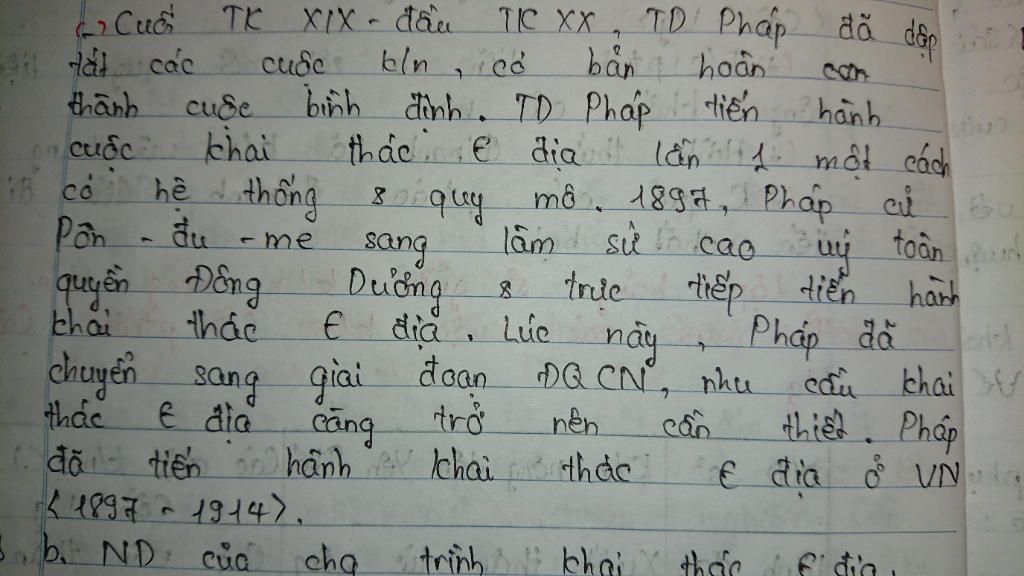 (-) Cuối TK XIX - đầu TK XX, TD Pháp đã dập
tắt các cuộc k/n, cơ bản hoàn con
thành cuộc bình định. TD Pháp tiến hành
cuộc khai thác € địa lần 1 một cách
có hệ thống & quy mô. 1897, Pháp cử
Pôn - đu - me sang làm sứ cao uỷ toàn
quyền Đông Dương & trực tiếp tiến hành
khai thác € địa. Lúc này, Pháp đã
chuyển sang giai đoạn ĐQCN, nhu cầu khai
thác € địa càng trở nên cần thiết. Pháp
đã tiến hành khai thác € địa ở VN
<1897 - 1914>.
b. ND của chg trình khai thác € địa.